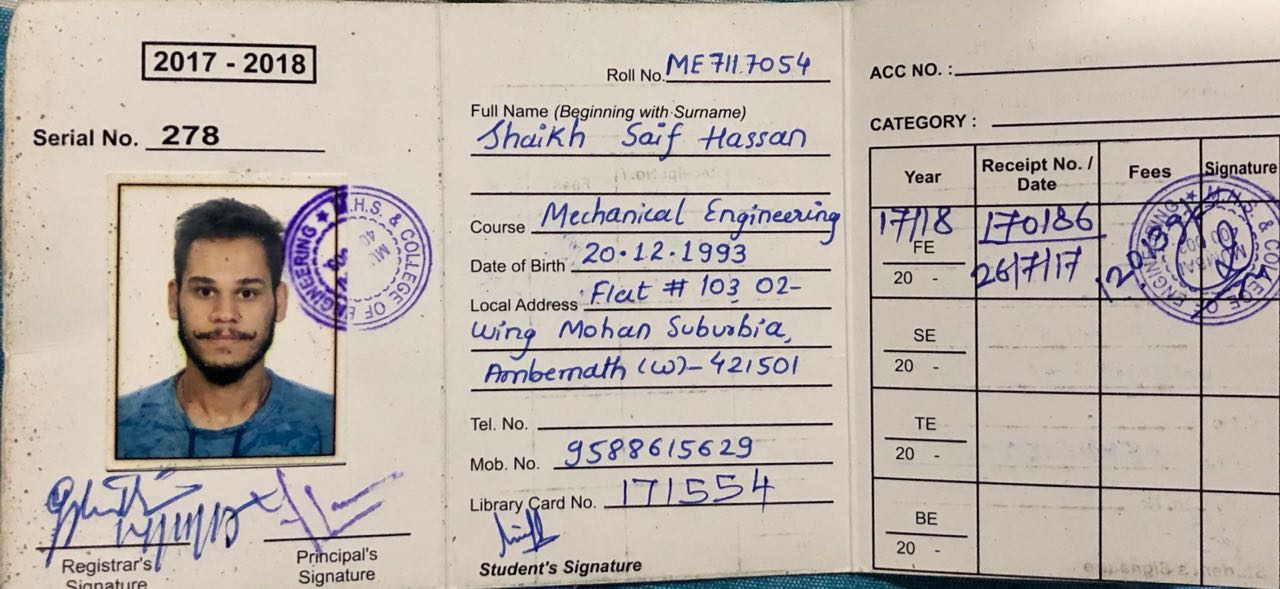 2017 - 2018
Serial No. 278
Registrar's
Signature
Principal's
Signature
Roll No. ME7117054
Full Name (Beginning with Surname)
Shaikh Saif Hassan
Course Mechanical Engineering
Date of Birth 20.12.1993
Local Address Flat # 103 02-
Wing Mohan Suburbia,
Ambernath (W)-421501
Tel. No.
Mob. No. 9588615629
Library Card No. 171554
Student's Signature
ACC NO. :
CATEGORY :
Year Receipt No. / Date Fees Signature
17/18 170186
FE
20 - 26/7/17
SE
20 -
TE
20 -
BE
20 -